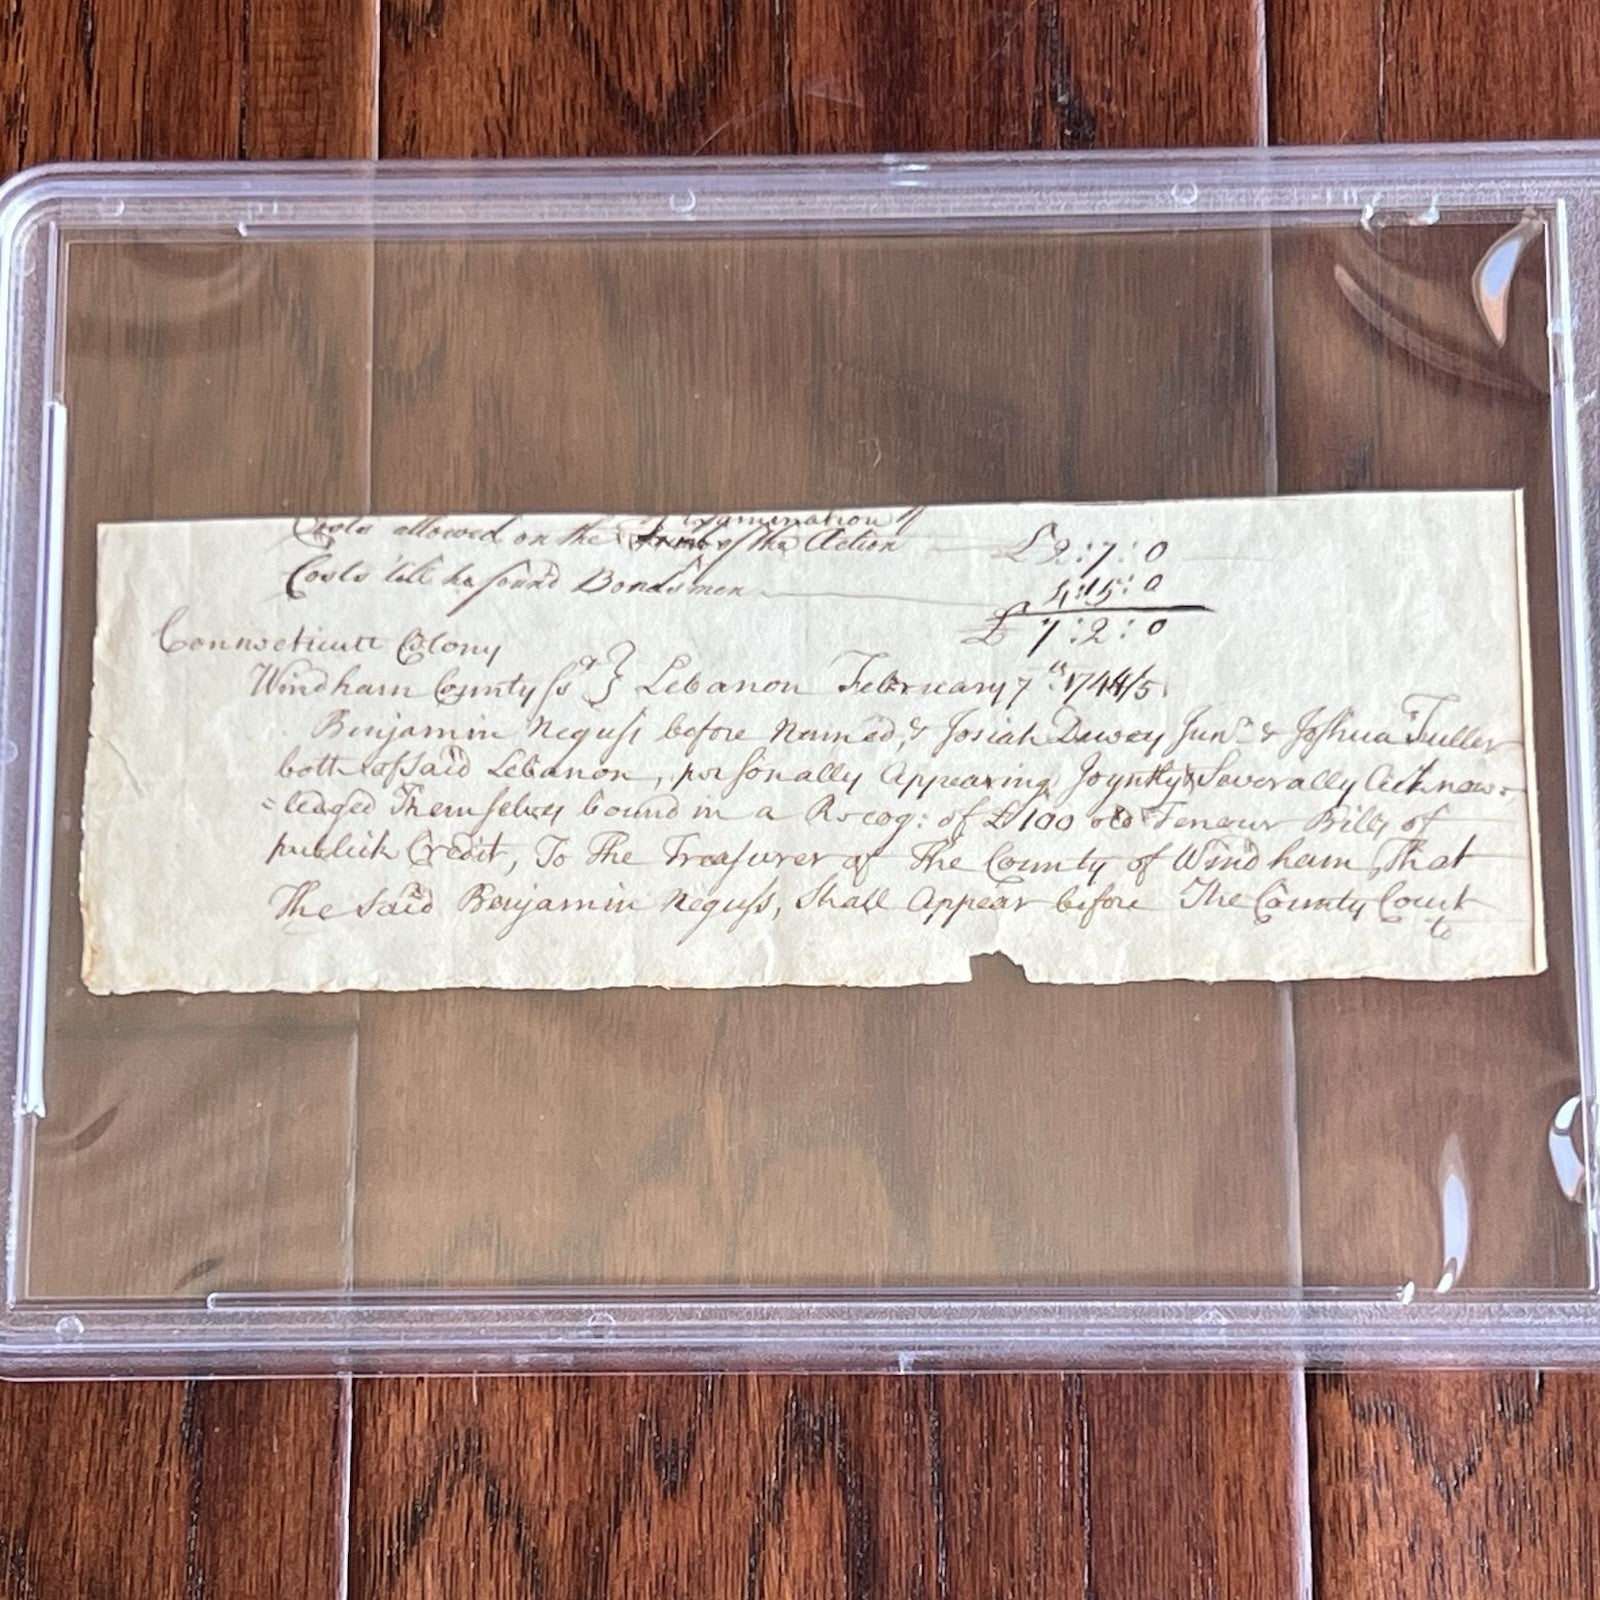 Examination of
Costs allowed on the of the Action £2:7:0
Costs till he found Bondsmen 4:15:0
£7:2:0
Connecticutt Colony
Windham County ss } Lebanon February 7th: 1744/5.
Benjamin Neguss before Named, & Josiah Dewey Junr & Joshua Fuller
both of said Lebanon, personally Appearing Joyntly & Severally Acknow=
=ledged Themselves bound in a Recog: of £100 old Tenour Bills of
publick Credit, To The Treasurer of The County of Windham, That
The said Benjamin Neguss, Shall Appear before The County Court
to